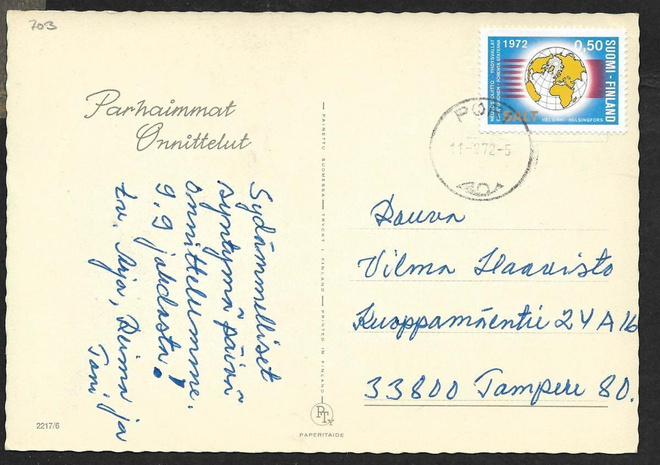 703
Parhaimmat
Onnittelut
Sydämmelliset
syntymä päivä
onnittelumme.
9.9 johdosta!
tv. Arja, Reima ja
Tani
2217/6
PAINETTU SUOMESSA — TRYCKT I FINLAND — PRINTED IN FINLAND
PTy
PAPERITAIDE
1972
0,50
SUOMI-FINLAND
NEUVOSTOLIITTO - YHDYSVALLAT
SALT
HELSINKI - HELSINGFORS
11-9.72-5
Rouva
Vilma Haavisto
Kuoppamäentie 24 A 16
33800 Tampere 80.